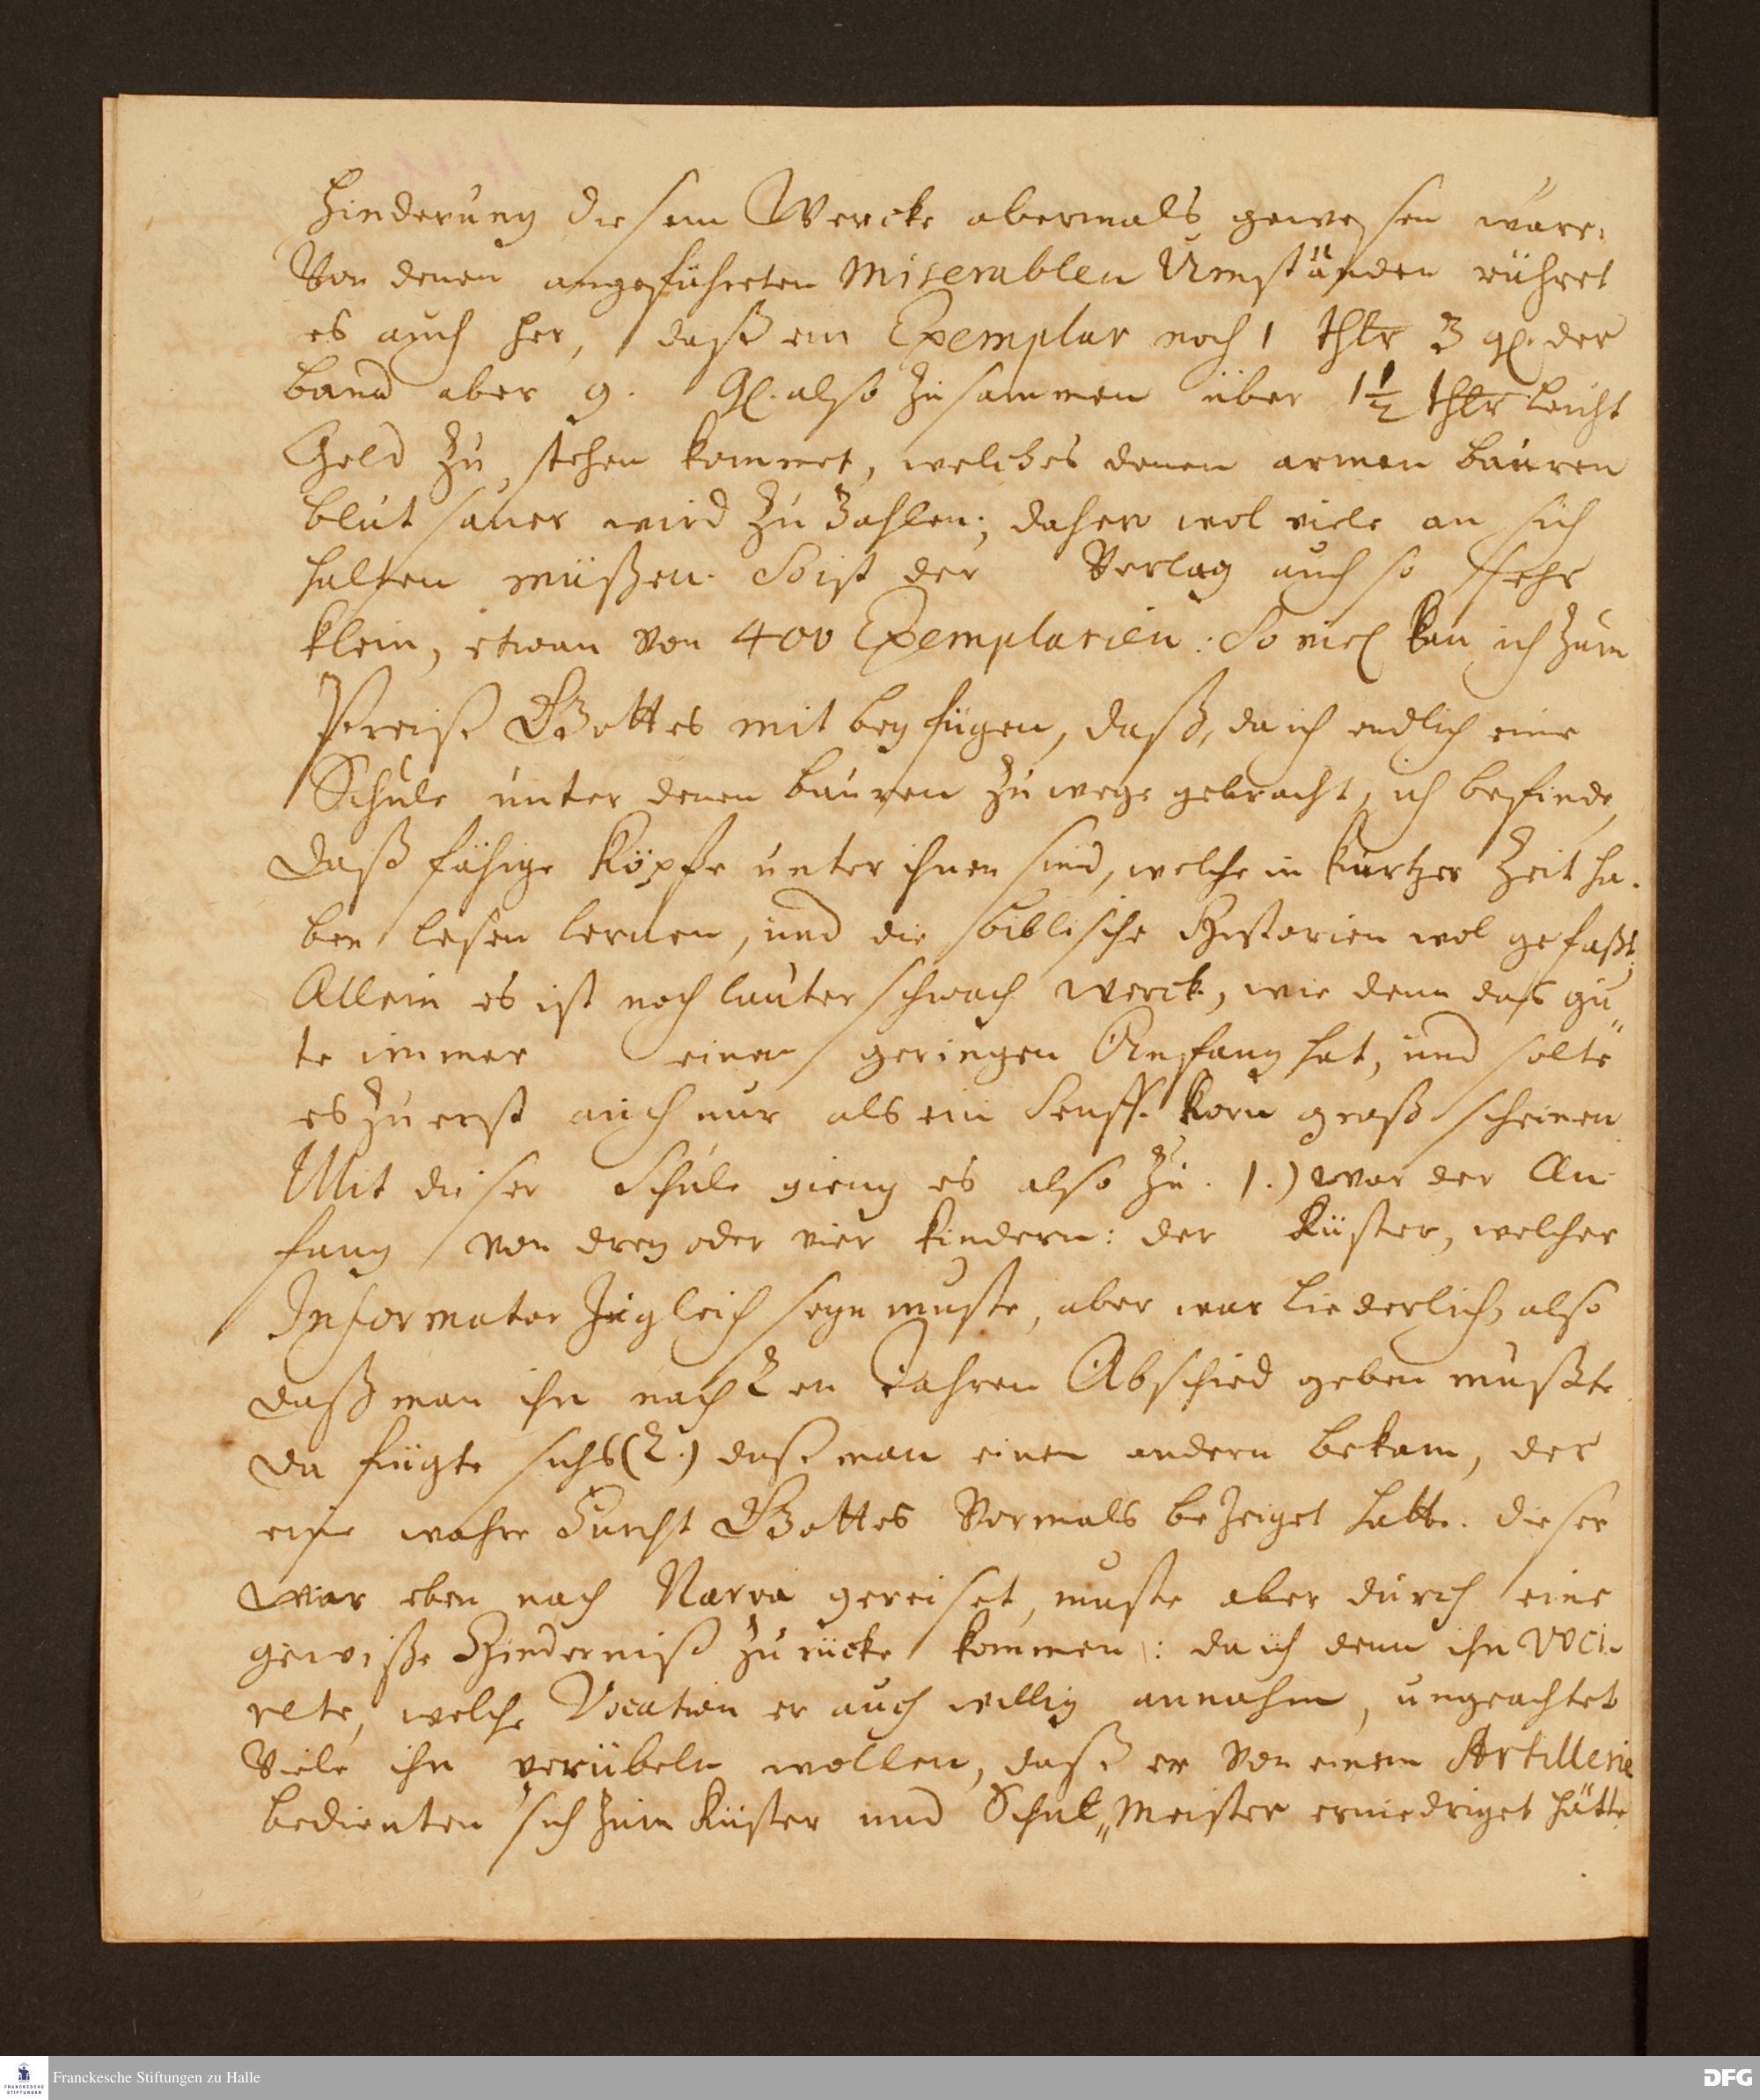 Hinderung diesem Wercke abermals gewesen wäre.
Von denen angeführten miserablen Umständen rühret
es auch her, daß ein Exemplar noch 1 thlr 3 gl. der
band aber 9. Gl. also zusammen über 1 1/2 thlr leicht
Geld zu stehen kommet, welches denen armen bauren
blut sauer wird zu Zahlen; dahero wol viele an sich
halten müßen. So ist der Verlag auch so sehr
klein, etwan von 400 Exemplarien. So viel kan ich zum
Preiße Gottes mit beyfügen, daß, da ich endlich eine
Schule unter denen bauren zuwege gebracht, ich befinde,
daß fähige Köpfe unter ihnen sind, welche in kurtzer Zeit ha-
ben lesen lernen, und die biblische Historien wol gefaßt;
Allein es ist noch lauter schwach werck, wie denn daß gu„
te immer einen geringen Anfang hat, und solte
es zu erst auch nur als ein Senff-korn groß scheinen
Mit dieser Schule gieng es also zu. 1.) war der An-
fang von drey oder vier kindern: der Küster, welcher
Informator zugleich seyn muste, aber war liederlich, also
daß man ihn nach 2en Jahren Abschied geben mußte.
Da fügte sichs (2.) daß man einen andern bekam, der
eine wahre Furcht Gottes Vormals bezeiget hatte. dieser
war eben nach Narva gereiset, muste aber durch eine
gewiße Hinderniß zu rücke kommen: da ich denn ihn voci-
rete, welche Vocation er auch willig annahm, ungeachtet
Viele ihn verübeln wollen, daß er von einem Artillerie
bedienten sich zum Küster und Schul„Meister erniedriget hätte
Franckesche Stiftungen zu Halle
FRANCKESCHE
STIFTUNGEN
DFG